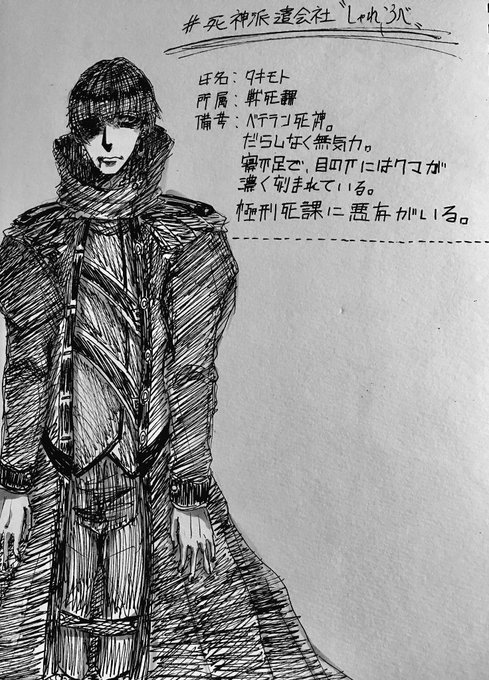 #死神派遣会社"しゃれこうべ"
氏名:タキモト
所属:戦死課
備考:ベテラン死神。
だらしなく無気力。
寝不足で、目の下にはクマが
濃く刻まれている。
極刑死課に悪友がいる。